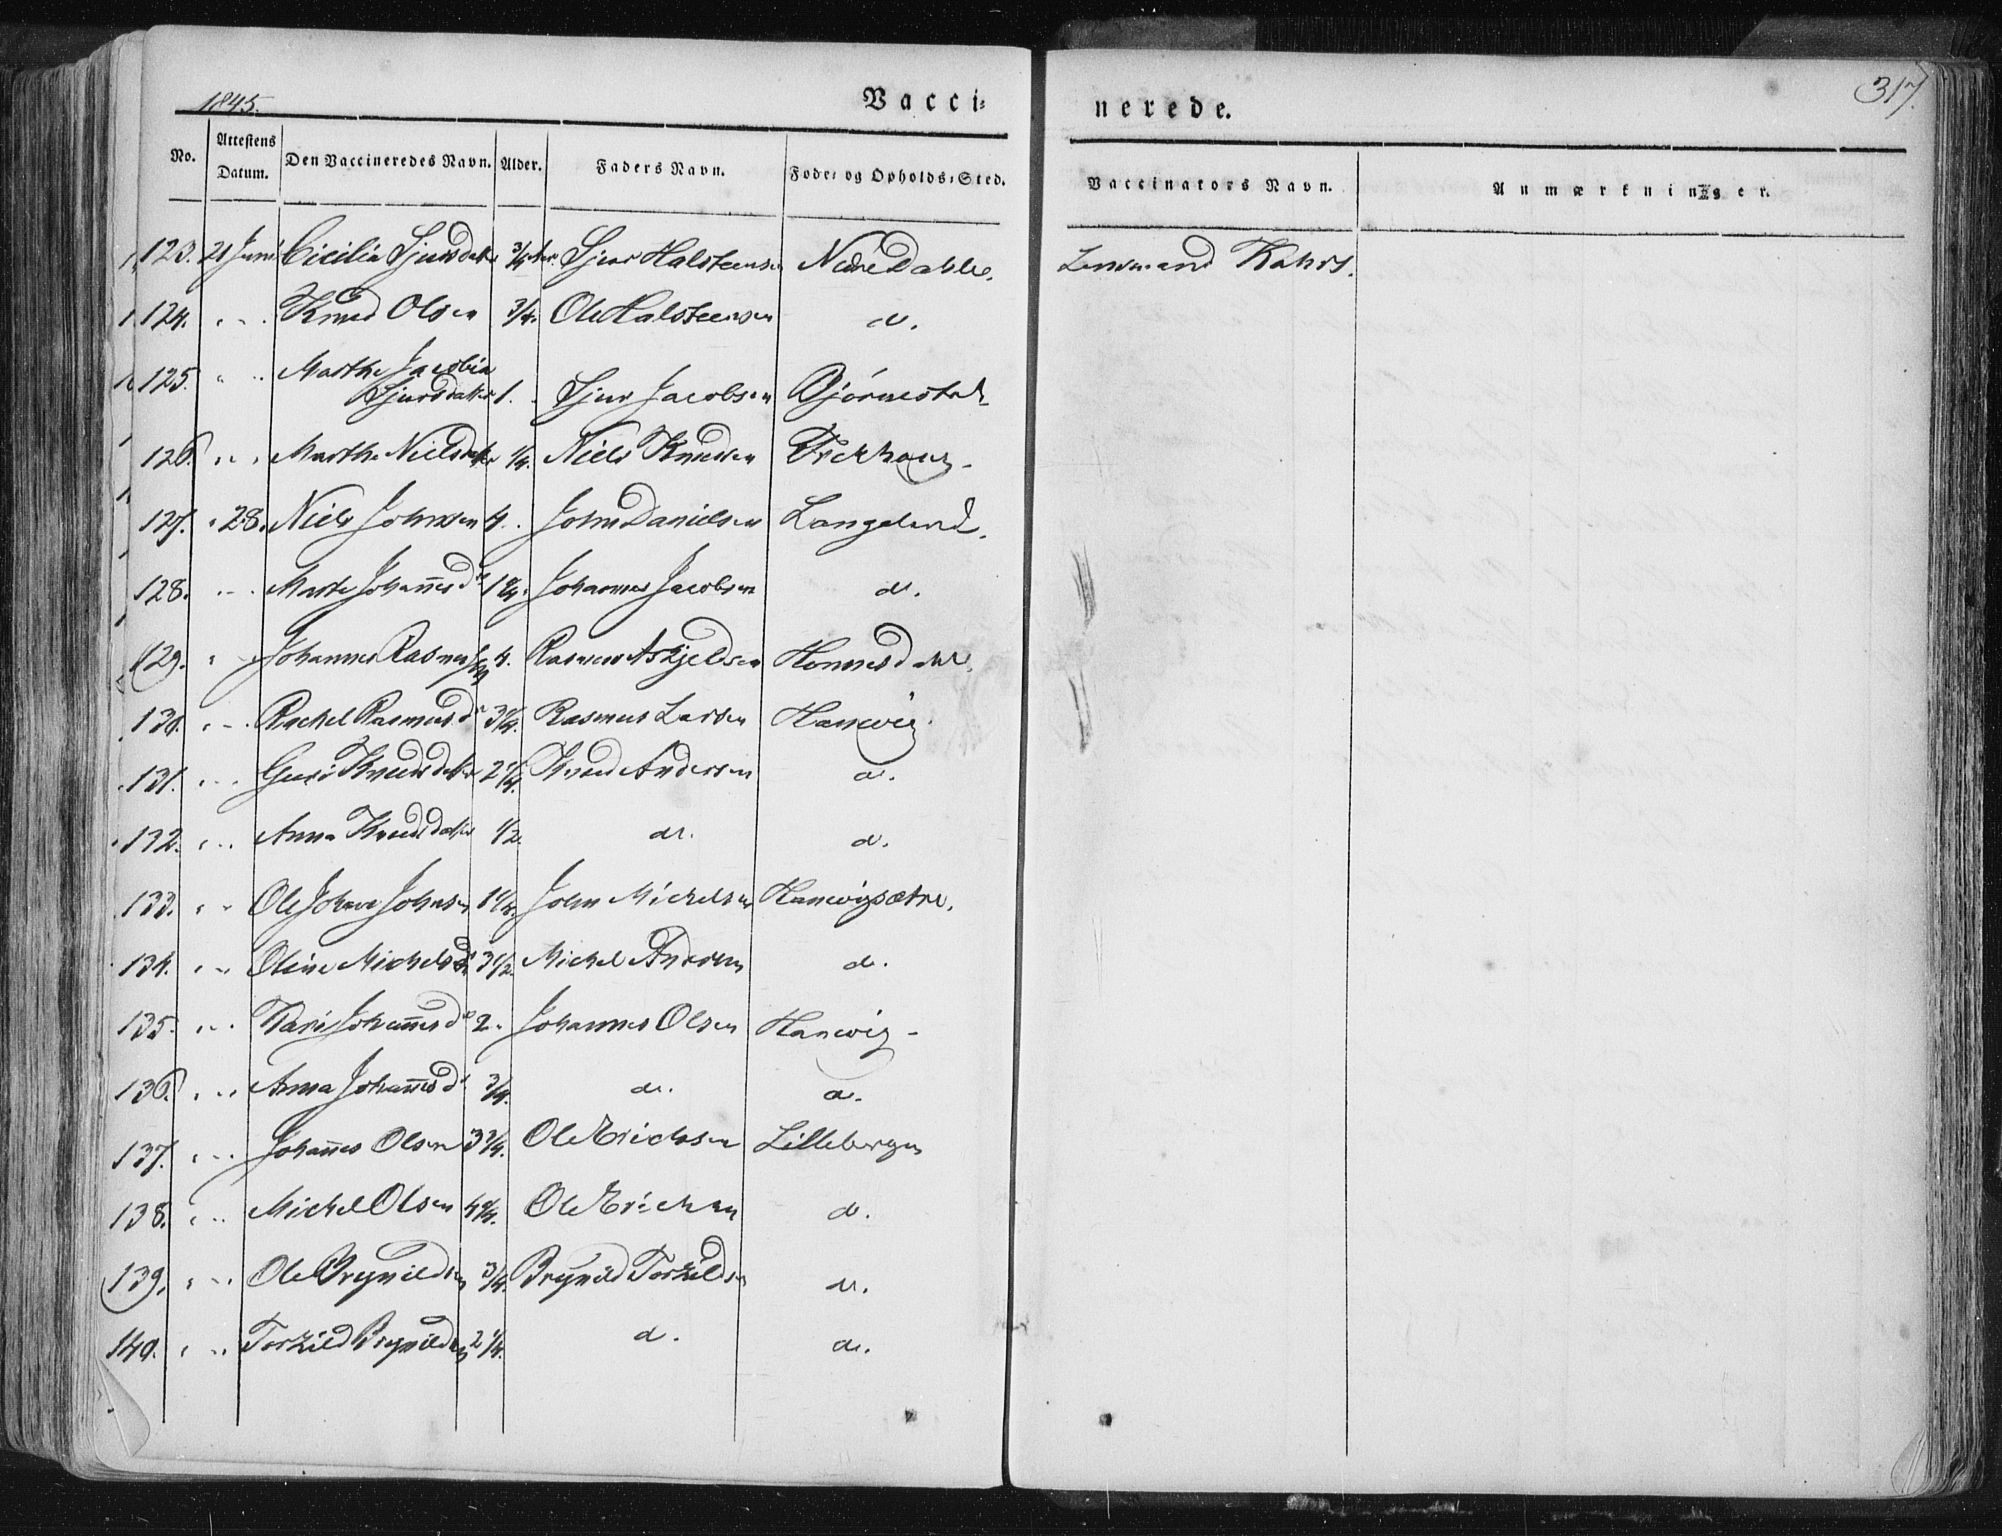 1845. Vacci= nerede. 317.
No. Attestens Datum. Den Vaccineredes Navn. Alder. Faders Navn. Føde= og Opholds=Sted. Vaccinators Navn. Anmærkninger.
123. 21 Juni Cicilia Sjursdatter 3/4 Sjur Halsteensen Nedre Dahle. Lensmand Kahrs.
124. " " Knud Olsen 3/4. Ole Halsteensen do.
125. " " Marthe Jacobia
Sjursdatter 1. Sjur Jacobsen Bjørnestad
126. " " Marthe Nielsdatter 1/4. Niels Knudsen Trekhaug
127. " 28. Niels Johnsen 4. John Danielsen Langeland.
128. " " Marte Johannesdr 1 Johannes Jacobsen do.
129. " " Johannes Rasmussen 4. Rasmus Askjeldsen Hannesdahl.
130. " " Rachel Rasmusdr 3 Rasmus Larsen Hanevig
131. " " Guri Knudsdatter 2 1/4. Knud Andersen do.
132. " " Anna Knudsdatter 1/2. do. do.
133. " " Ole Johan Johnsen 1 1/4. John Michelsen Hanevigsætre.
134. " " Oline Michelsdr 3 1/2. Michel Andersen do.
135. " " Kari Johannesdr 2. Johannes Olsen Hanevig
136. " " Anna Johannesdr 3/4. do. do.
137. " " Johannes Olsen 3 3/4. Ole Erichsen Lillebergen
138. " " Michel Olsen 4 Ole Erichsen do.
139. " " Ole Brynildsen 3/4. Brynild Torkildsen do.
140. " " Torkild Brynildsen 2 1/4. do. do.